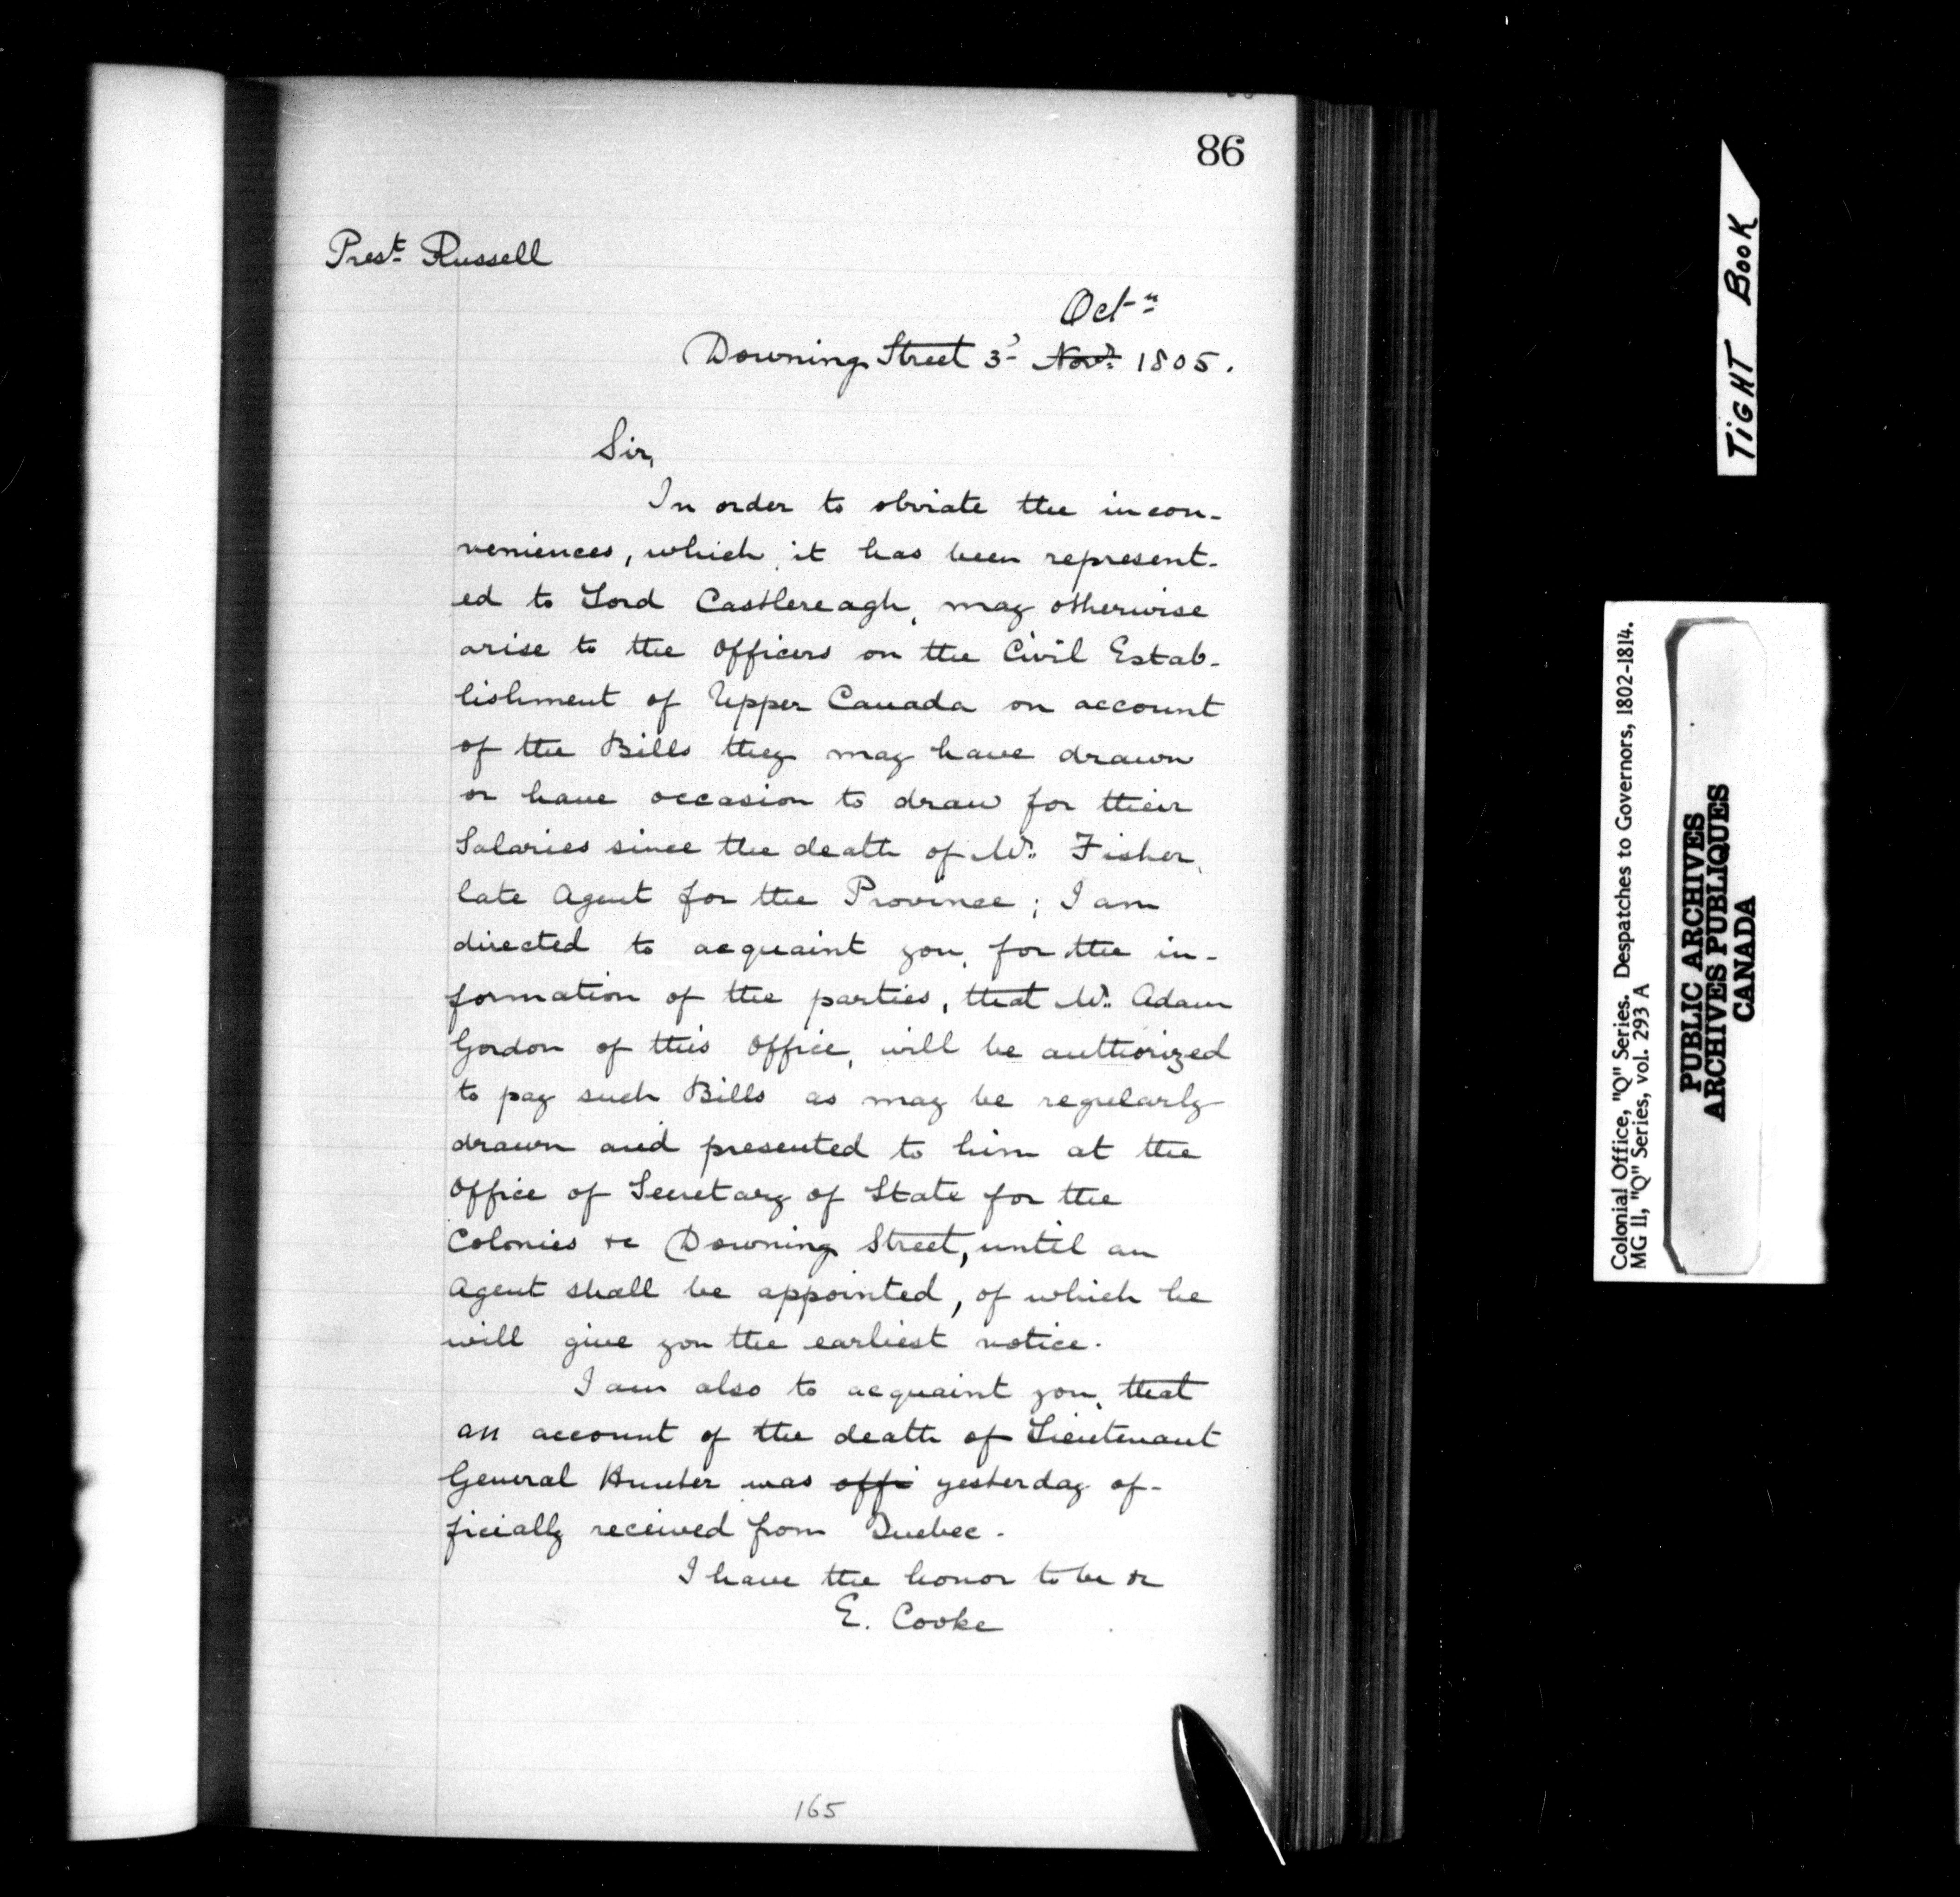 86
Prest. Russell
Octr.
Downing Street 3d ~~Novr.~~ 1805.
Sir,
In order to obviate the incon-
veniences, which it has been represent-
ed to Lord Castlereagh, may otherwise
arise to the Officers on the Civil Estab-
lishment of Upper Canada on account
of the Bills they may have drawn
or have occasion to draw for their
Salaries since the death of Mr. Fisher,
late Agent for the Province; I am
directed to acquaint you, for the in-
formation of the parties, that Mr. Adam
Gordon of this Office, will be authorized
to pay such Bills as may be regularly
drawn and presented to him at the
Office of Secretary of State for the
Colonies &c Downing Street, until an
Agent shall be appointed, of which he
will give you the earliest notice.
I am also to acquaint you, that
an account of the death of Lieutenant
General Hunter was ~~offi~~ yesterday of-
ficially received from Quebec.
I have the honor to be &c
E. Cooke
165
TIGHT BOOK
Colonial Office, "Q" Series. Despatches to Governors, 1802-1814.
MG 11, "Q" Series, vol. 293 A
PUBLIC ARCHIVES
ARCHIVES PUBLIQUES
CANADA